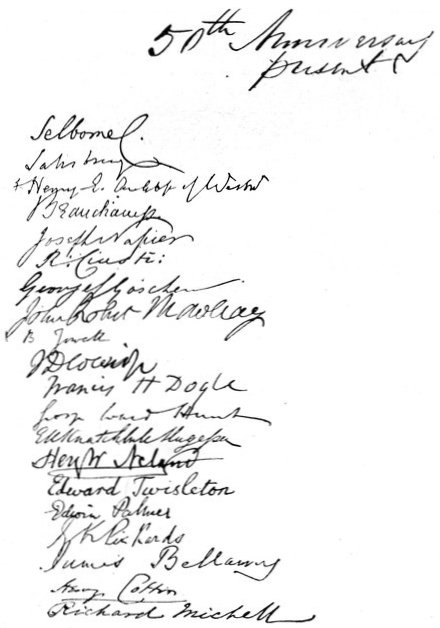 50th Anniversary
present
Selborne C.
Salisbury
+ Henry E. Archbp of Westmr
Beauchamp
Joseph Napier
George J Goschen
John Robert Mowbray
B Jowett
J D Coleridge
Francis H Doyle
George Ward Hunt
E H Knatchbull Hugessen
Henry W Acland
Edward Twisleton
Edwin Palmer
G K Rickards
James Bellamy
Henry Cotton
Richard Michell